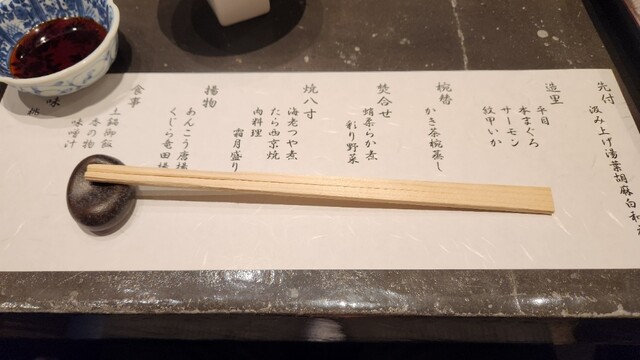 先付
汲み上げ湯葉胡麻白和
造里
平目
本まぐろ
サーモン
紋甲いか
椀替
かき茶椀蒸し
焚合せ
蛸柔らか煮
彩り野菜
焼八寸
海老つや煮
たら西京焼
肉料理
霜月盛り
揚物
あんこう唐揚
くじら竜田揚
食事
土鍋御飯
香の物
味噌汁
味